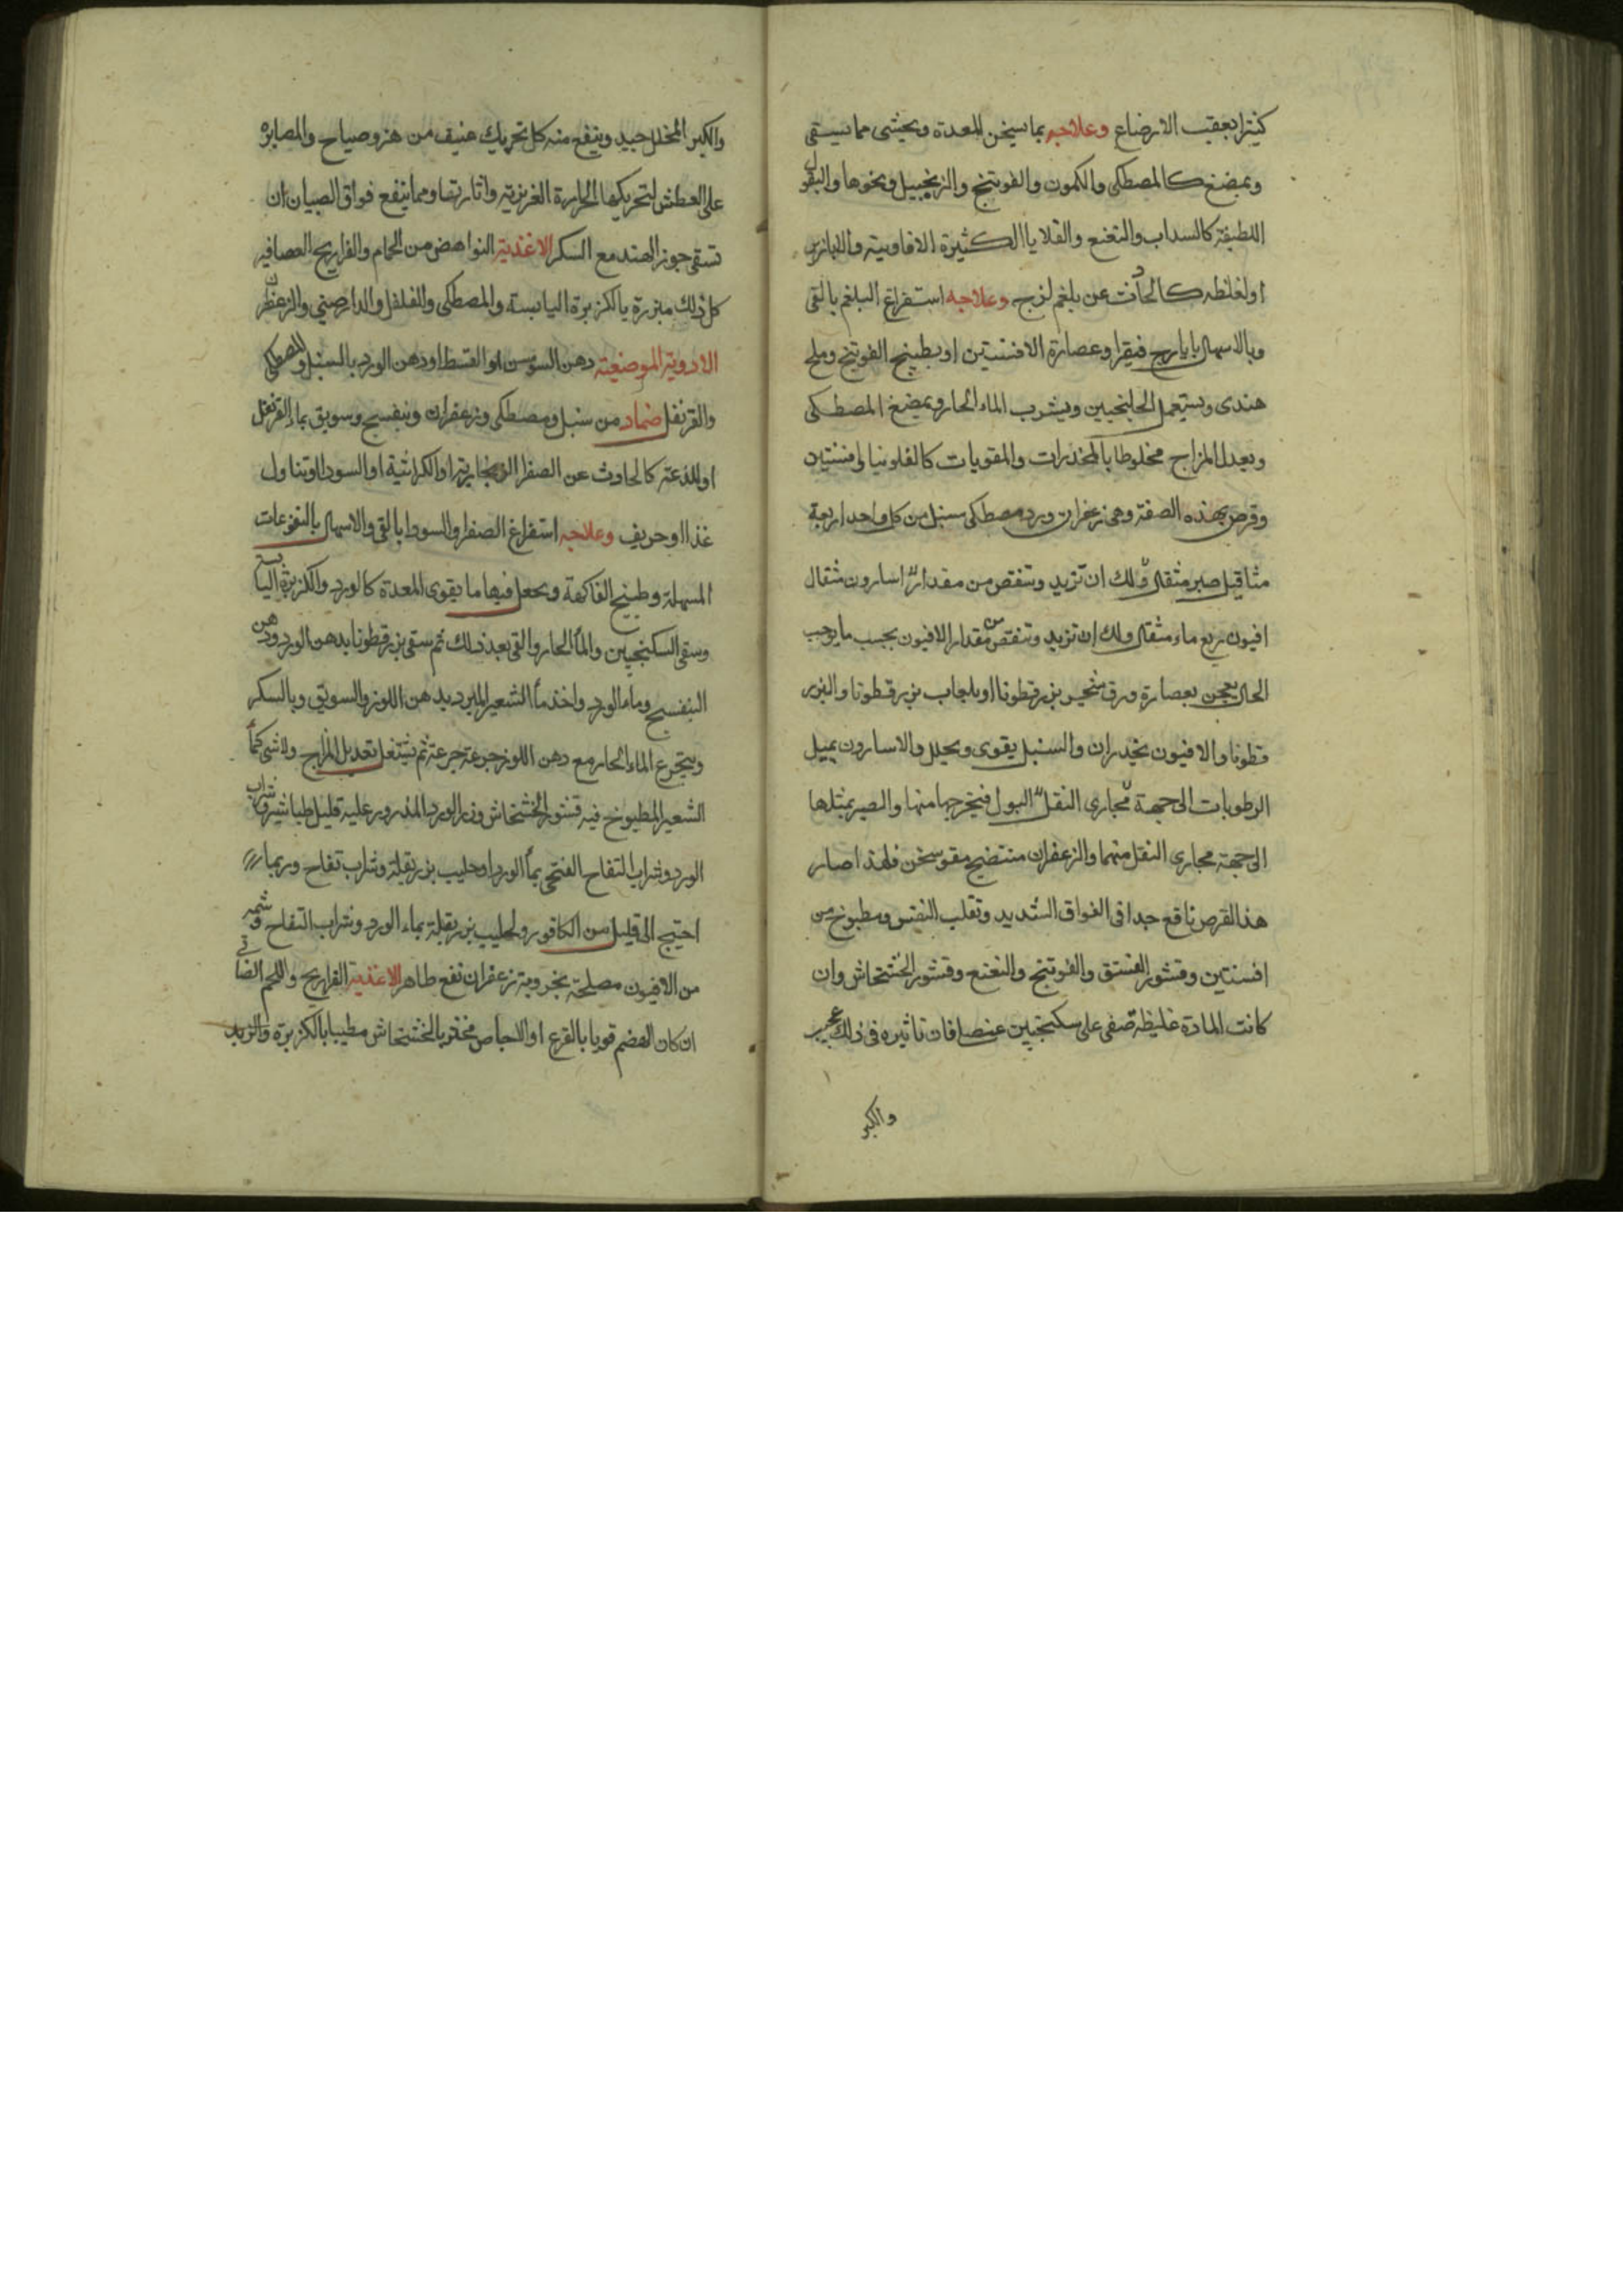 كثيرا بعقب الارضاع وعلاجه بما يسخن المعدة ويحشى مما يسقى
ويمضغ كالمصطكى والكمون والفوتنج والزنجبيل ونحوها والبقول
اللطيفة كالسداب والنعنع والقلايا الكثيرة الافاوية والابازير
او لغلظه كالحادث عن بلغم لزج وعلاجه استفراغ البلغم بالقى
وبالاسهال بايارج فيقرا وعصارة الافسنتين او بطبيخ الفوتنج وملح
هندى ويستعمل الجلنجبين ويشرب الماء الحار ويمضغ المصطكى
ويعدل المزاج مخلوطا بالمخدرات والمقويات كالفلونيا وافسنتين
وقرص بهذه الصفة وهى زعفران ورد مصطكى سنبل من كل واحد اربعة
مثاقيل صبر مثقال ولك ان تزيد وتنقص من مقداره اسارون مثقال
افيون ربع ماء مثقال ولك ان تزيد وتنقص من مقدار الافيون بحسب ما يوجب
الحال يعجن بعصارة ورق بزرقطونا او بلعاب بزرقطونا والبزر
قطونا والافيون يخدران والسنبل يقوى ويحلل والاسارون يميل
الرطوبات الى جهة مجارى البول فيخرجها منها والصبر يميلها
الى جهة مجارى الثقل منهما والزعفران منضج مقو مسخن فلهذا صار
هذا القرص نافع جدا فى الفواق الشديد وتقلب النفس ومطبوخ من
افسنتين وقشور الفستق والفوتنج والنعنع وقشور الخشخاش وان
كانت المادة غليظة صفى على سكنجبين عنصلى فان تاثيره فى ذلك عجيب
والكبر
والكبر المخلل جيد وينفع منه كل تحريك عنيف من هز وصياح والمصابرة
على العطش لتحريكها الحرارة الغريزية واثارتها ومما ينفع فواق الصبيان ان
تسقى جوز الهند مع السكر الاغذية النواهض من الحمام والفراريج العصافير
كل ذلك مبزرة بالكزبرة اليابسة والمصطكى والفلفل والدارصينى والزعفران
الادوية الموضعية دهن السوسن او القسط او دهن الورد بالسنبل والمصطكى
والقرنفل ضماد من سنبل ومصطكى وزعفران وبنفسج وسويق بماء القرنفل
او للذعته كالحادث عن الصفرا الزنجارية او الكراثية او السودا وتناول
غذا او حريف وعلاجه استفراغ الصفرا والسودا بالقى والاسهال بالنقوعات
المسهلة وطبيخ الفاكهة ويجعل فيها ما يقوى المعدة كالورد والكزبرة اليابسة
وسقى السكنجبين والماء الحار والقى بعد ذلك ثم سقى بزرقطونا بدهن الورد ودهن
البنفسج وماء الورد واخذ ماء الشعير المبرد بدهن اللوز والسويق وبالسكر
ويتجرع الماء الحار مع دهن اللوز جرعة جرعة ثم يشتغل بتعديل المزاج ولا شى كماء
الشعير المطبوخ فيه قشور الخشخاش وزر الورد المذرور عليه قليل طباشير وشراب
الورد وشراب التفاح الفتحى بماء الورد او حليب بزر بقلة وشراب تفاح وربما
احتيج الى قليل من الكافور ولحليب بزر بقلة بماء الورد وشراب التفاح وشمه
من الافيون مصلحة زعفران نفع ظاهر الاغذية الفراريج واللحم الضانى
ان كان الهضم قويا بالقرع او الاجاص مخثر بالخشخاش مطيبا بالكزبرة والزبد